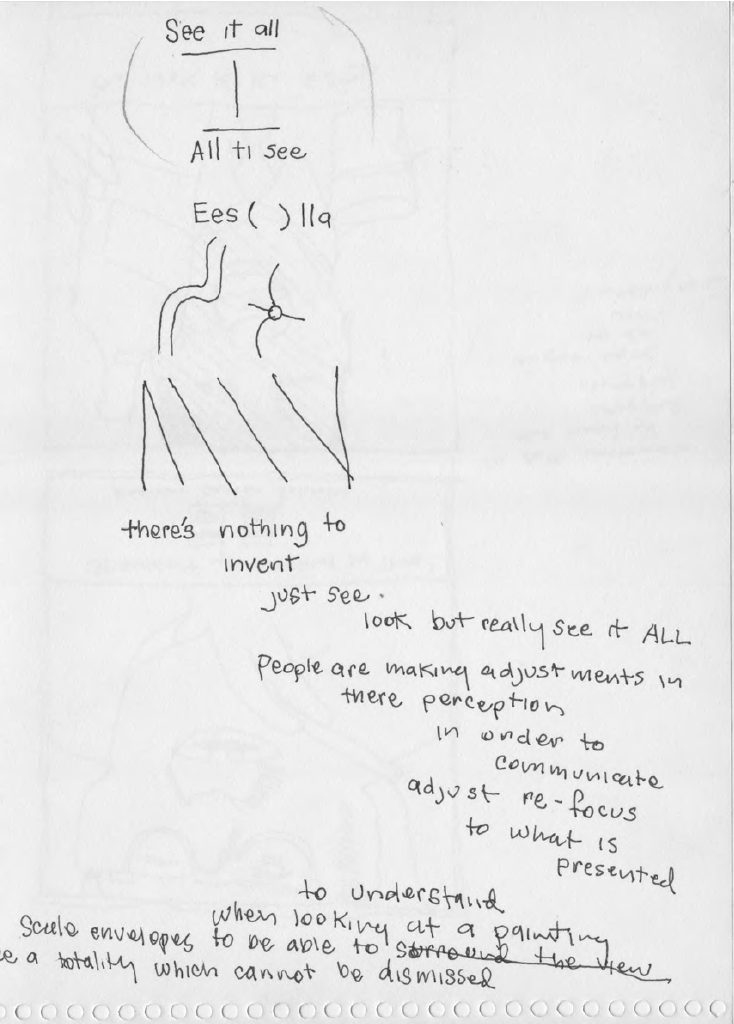 See it all
All ti see
Ees ( ) lla
there's nothing to
invent
just see.
look but really see it ALL
People are making adjustments in
there perception
in order to
communicate
adjust re-focus
to what is
presented
to understand
when looking at a painting
Scale envelopes to be able to surround the view
a totality which cannot be dismissed